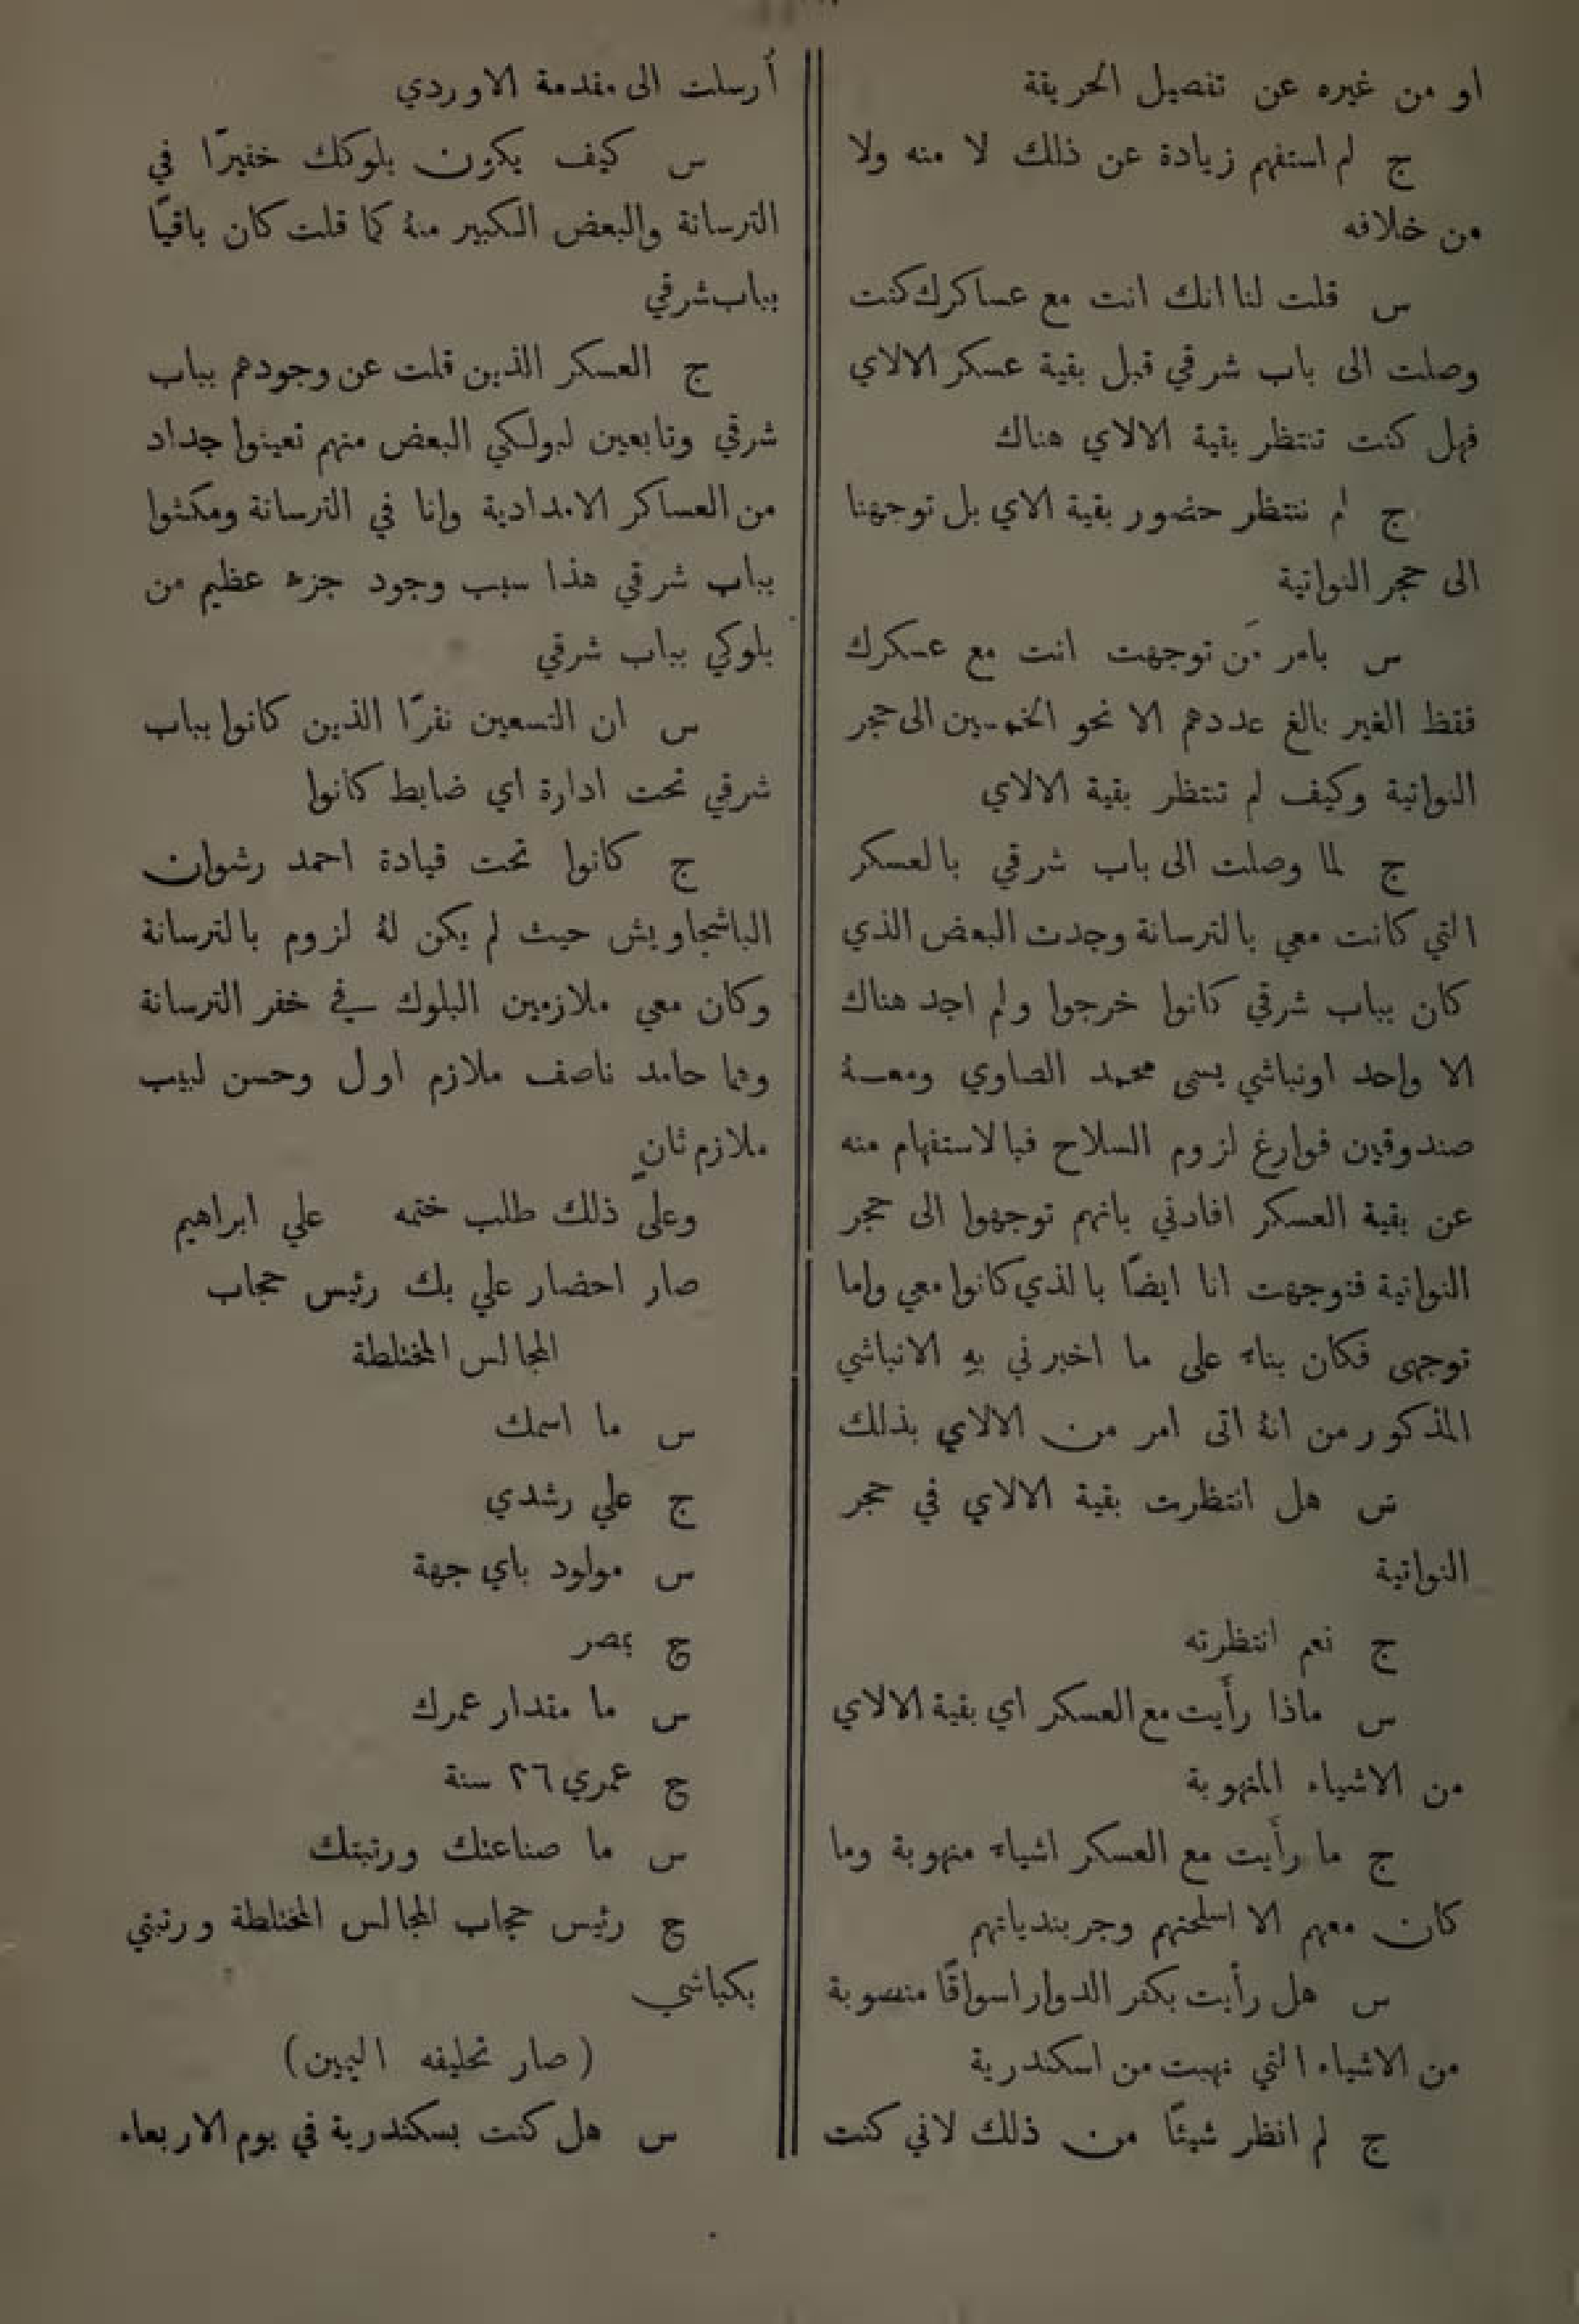 او من غيره عن تفصيل الحريقة
ج لم استفهم زيادة عن ذلك لا منه ولا
من خلافه
س قلت لنا انك انت مع عساكرك كنت
وصلت الى باب شرقي قبل بقية عسكر الالاي
فهل كنت تنتظر بقية الالاي هناك
ج لم ننتظر حضور بقية الاي بل توجهنا
الى حجر النواتية
س بامر مَن توجهت انت مع عسكرك
فقط الغير بالغ عددهم الا نحو الخمسين الى حجر
النواتية وكيف لم تنتظر بقية الالاي
ج لما وصلت الى باب شرقي بالعسكر
التي كانت معي بالترسانة وجدت البعض الذي
كان بباب شرقي كانوا خرجوا ولم اجد هناك
الا واحد اونباشي يسمى محمد الصاوي ومعهُ
صندوقين فوارغ لزوم السلاح فبالاستفهام منه
عن بقية العسكر افادني بانهم توجهوا الى حجر
النواتية فتوجهت انا ايضًا بالذي كانوا معي واما
توجهى فكان بناء على ما اخبرني بهِ الانباشي
المذكور من انهُ اتى امر من الالاي بذلك
س هل انتظرت بقية الالاي في حجر
النواتية
ج نعم انتظرته
س ماذا رأيت مع العسكر اي بقية الالاي
من الاشياء المنهوبة
ج ما رأيت مع العسكر اشياء منهوبة وما
كان معهم الا اسلحتهم وجربندياتهم
س هل رأيت بكفر الدوار اسواقًا منصوبة
من الاشياء التي نهبت من اسكندرية
ج لم انظر شيئًا من ذلك لاني كنت
أرسلت الى مقدمة الاوردي
س كيف يكون بلوكك خفيرًا في
الترسانة والبعض الكبير منهُ كما قلت كان باقيًا
بباب شرقي
ج العسكر الذين قلت عن وجودهم بباب
شرقي وتابعين لبولكي البعض منهم تعينوا جداد
من العساكر الامدادية وانا في الترسانة ومكثوا
بباب شرقي هذا سبب وجود جزء عظيم من
بلوكي بباب شرقي
س ان التسعين نفرًا الذين كانوا بباب
شرقي تحت ادارة اي ضابط كانوا
ج كانوا تحت قيادة احمد رشوان
الباشجاويش حيث لم يكن لهُ لزوم بالترسانة
وكان معي ملازمين البلوك في خفر الترسانة
وهما حامد ناصف ملازم اول وحسن لبيب
ملازم ثانٍ
وعلى ذلك طلب ختمه علي ابراهيم
صار احضار علي بك رئيس حجاب
المجالس المختلطة
س ما اسمك
ج علي رشدي
س مولود باي جهة
ج بمصر
س ما مقدار عمرك
ج عمري ٢٦ سنة
س ما صناعتك ورتبتك
ج رئيس حجاب المجالس المختلطة ورتبتي
بكباشي
(صار تحليفه اليمين)
س هل كنت بسكندرية في يوم الاربعاء